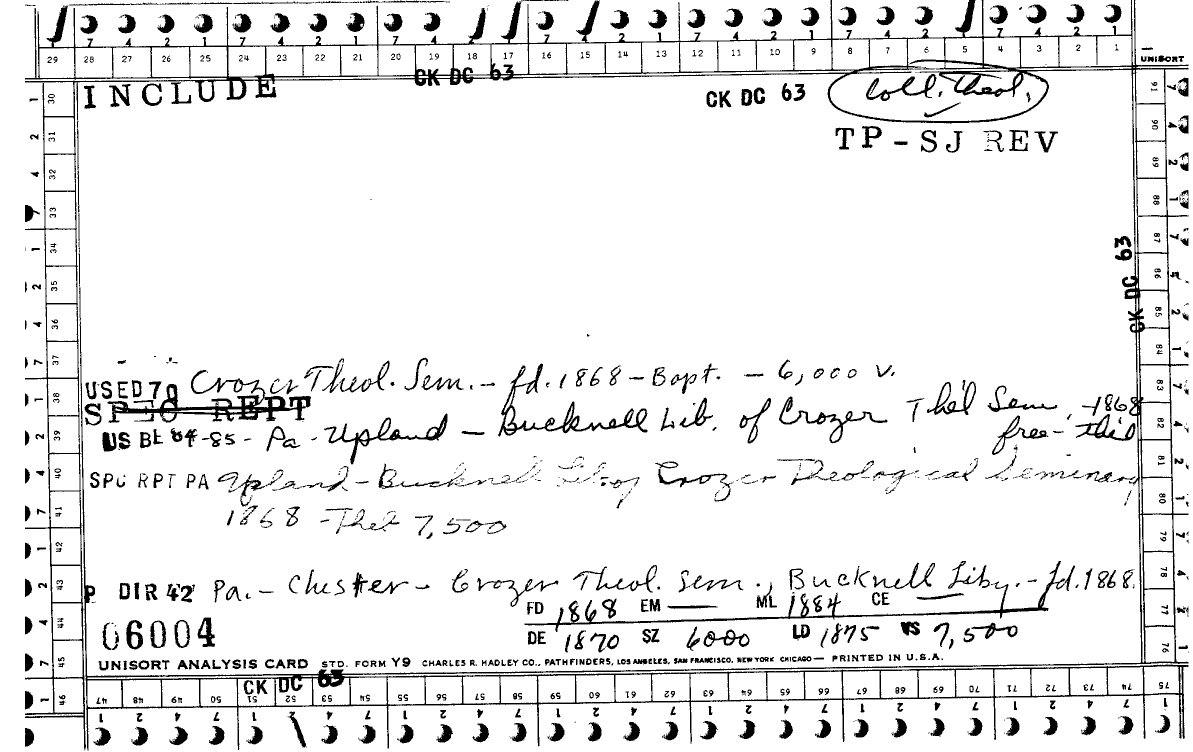 7 4 2 1 7 4 2 1 7 4 2 1 7 4 2 1 7 4 2 1
29 28 27 26 25 24 23 22 21 20 19 18 17 16 15 14 13 12 11 10 9 8 7 6 5 4 3 2 1 UNISORT
INCLUDE CK DC 63 CK DC 63 Coll. Theol.
TP-SJ REV
CK DC 63
USED 70 Crozer Theol. Sem. - fd. 1868 - Bapt. - 6,000 v.
SPEC REPT
US BE 84-85 - Pa - Upland - Bucknell Lib. of Crozer Th'l Sem. -1868
free - th'l
SPC RPT PA Upland - Bucknell Lib. of Crozer Theological Seminary
1868 - Thel 7,500
P DIR 42 Pa. - Chester - Crozer Theol. Sem., Bucknell Liby. - fd. 1868.
FD 1868 EM — ML 1884 CE —
06004 DE 1870 SZ 6000 LD 1875 VS 7,500
UNISORT ANALYSIS CARD STD. FORM Y9 CHARLES R. HADLEY CO., PATHFINDERS, LOS ANGELES, SAN FRANCISCO, NEW YORK CHICAGO — PRINTED IN U.S.A.
CK DC 63
47 48 49 50 51 52 53 54 55 56 57 58 59 60 61 62 63 64 65 66 67 68 69 70 71 72 73 74 75